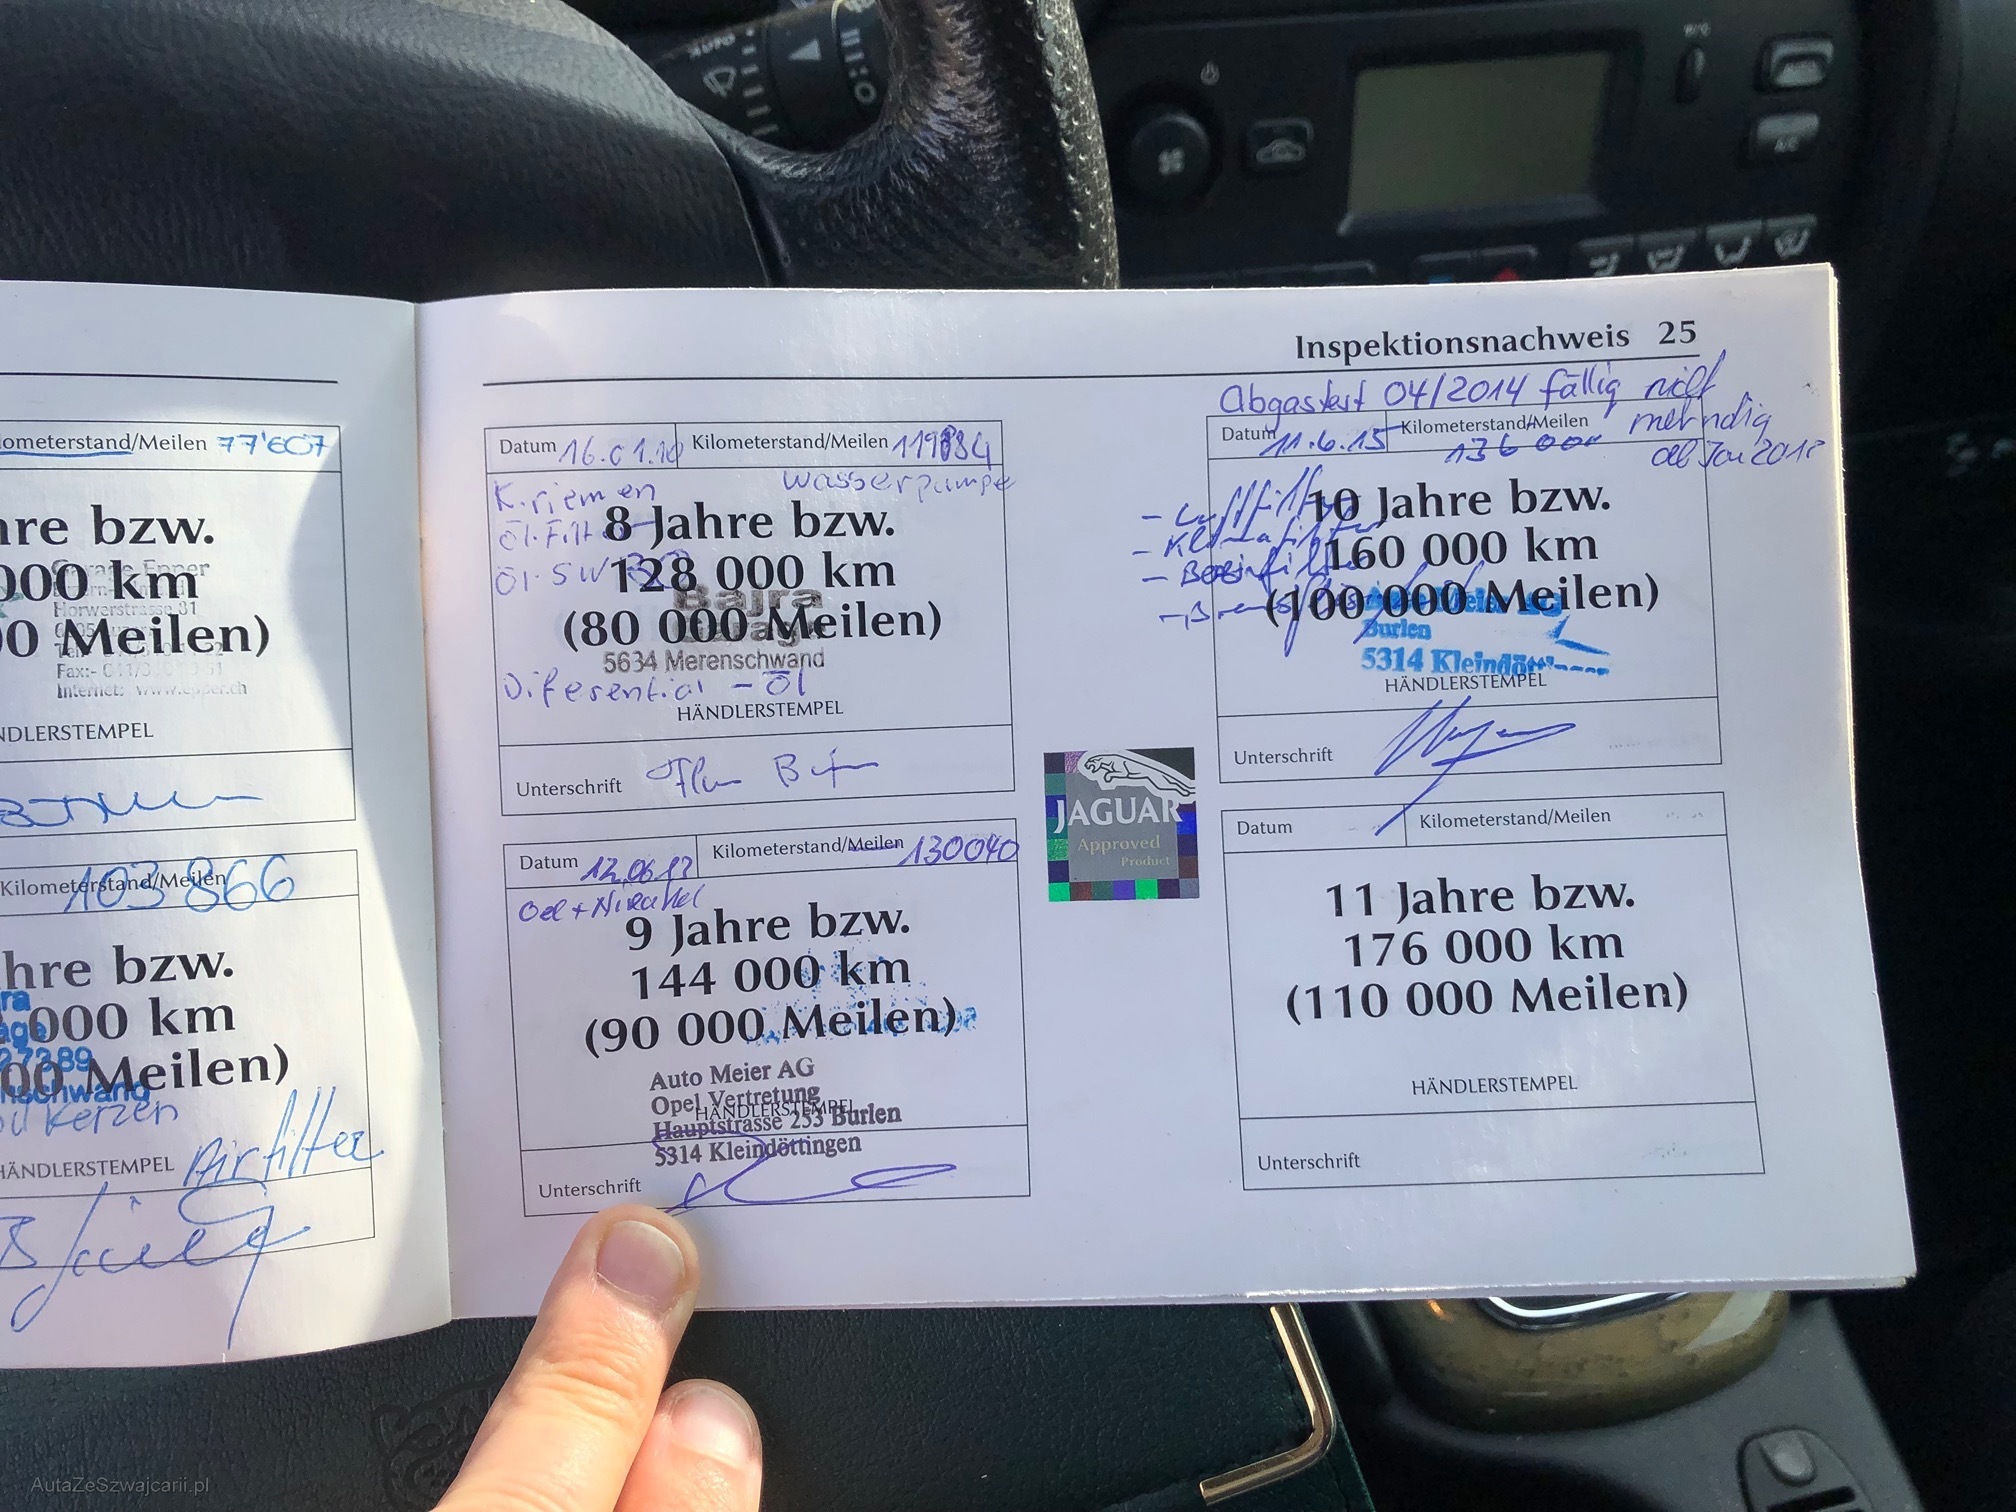 AUTO
A/C
Inspektionsnachweis 25
Kilometerstand/Meilen 77'607
hre bzw.
000 km
0 Meilen)
Horwerstrasse 81
Internet: www.epper.ch
HÄNDLERSTEMPEL
Kilometerstand/Meilen 103 866
hre bzw.
000 km
00 Meilen)
Kerzen
Airfilter
HÄNDLERSTEMPEL
Datum 16.01.10 Kilometerstand/Meilen
K.riemen
Wasserpumpe
8 Jahre bzw.
128 000 km
(80 000 Meilen)
Bajra
Garage
5634 Merenschwand
Diferential - Öl
HÄNDLERSTEMPEL
Unterschrift
Datum 12.06.12 Kilometerstand/Meilen 130040
9 Jahre bzw.
144 000 km
(90 000 Meilen)
Auto Meier AG
Opel Vertretung
HÄNDLERSTEMPEL
Hauptstrasse 253 Burlen
5314 Kleindöttingen
Unterschrift
JAGUAR
Approved
Product
Abgastest 04/2014 fällig nicht
Datum 11.6.13 Kilometerstand/Meilen 136 000
- Luftfilter
10 Jahre bzw.
160 000 km
(100 000 Meilen)
Burlen
5314 Kleindött
HÄNDLERSTEMPEL
Unterschrift
Datum Kilometerstand/Meilen
11 Jahre bzw.
176 000 km
(110 000 Meilen)
HÄNDLERSTEMPEL
Unterschrift
AutaZeSzwajcarii.pl